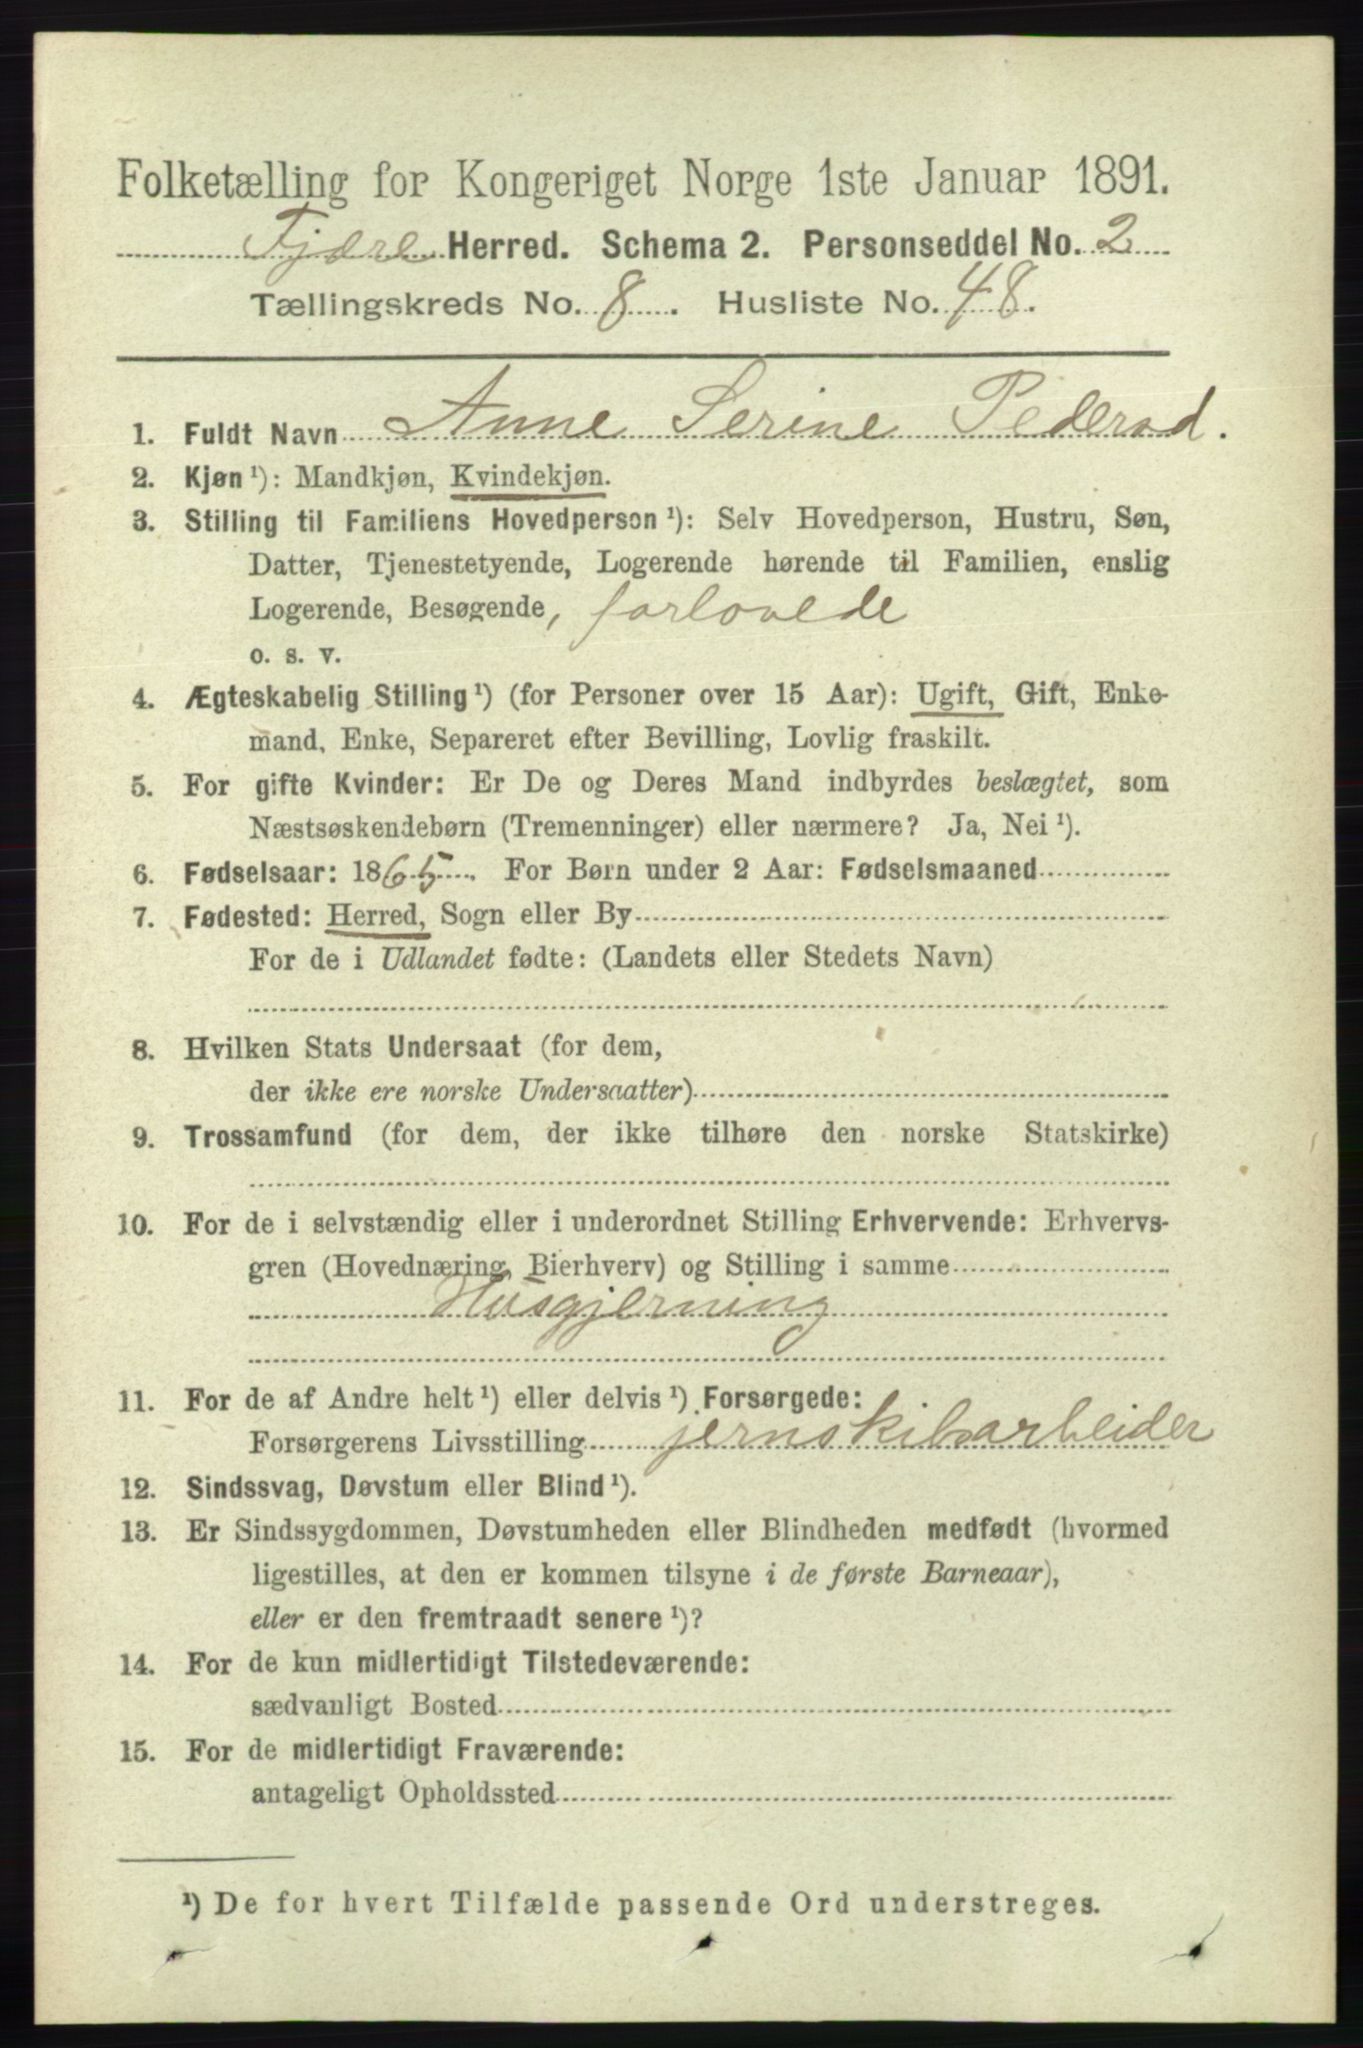 Folketælling for Kongeriget Norge 1ste Januar 1891.
Fjære Herred. Schema 2. Personseddel No. 2
Tællingskreds No. 8. Husliste No. 48.
1. Fuldt Navn Anne Serine Pedersd.
2. Kjøn ¹): Mandkjøn, Kvindekjøn.
3. Stilling til Familiens Hovedperson ¹): Selv Hovedperson, Hustru, Søn,
Datter, Tjenestetyende, Logerende hørende til Familien, enslig
Logerende, Besøgende, forlovede
o. s. v.
4. Ægteskabelig Stilling ¹) (for Personer over 15 Aar): Ugift, Gift, Enke-
mand, Enke, Separeret efter Bevilling, Lovlig fraskilt.
5. For gifte Kvinder: Er De og Deres Mand indbyrdes beslægtet, som
Næstsøskendebørn (Tremenninger) eller nærmere? Ja, Nei ¹).
6. Fødselsaar: 1865. For Børn under 2 Aar: Fødselsmaaned
7. Fødested: Herred, Sogn eller By
For de i Udlandet fødte: (Landets eller Stedets Navn)
8. Hvilken Stats Undersaat (for dem,
der ikke ere norske Undersaatter)
9. Trossamfund (for dem, der ikke tilhøre den norske Statskirke)
10. For de i selvstændig eller i underordnet Stilling Erhvervende: Erhvervs-
gren (Hovednæring, Bierhverv) og Stilling i samme
Husgjerning
11. For de af Andre helt ¹) eller delvis ¹) Forsørgede:
Forsørgerens Livsstilling jernskibsarbeider
12. Sindssvag, Døvstum eller Blind ¹).
13. Er Sindssygdommen, Døvstumheden eller Blindheden medfødt (hvormed
ligestilles, at den er kommen tilsyne i de første Barneaar),
eller er den fremtraadt senere ¹)?
14. For de kun midlertidigt Tilstedeværende:
sædvanligt Bosted
15. For de midlertidigt Fraværende:
antageligt Opholdssted
¹) De for hvert Tilfælde passende Ord understreges.